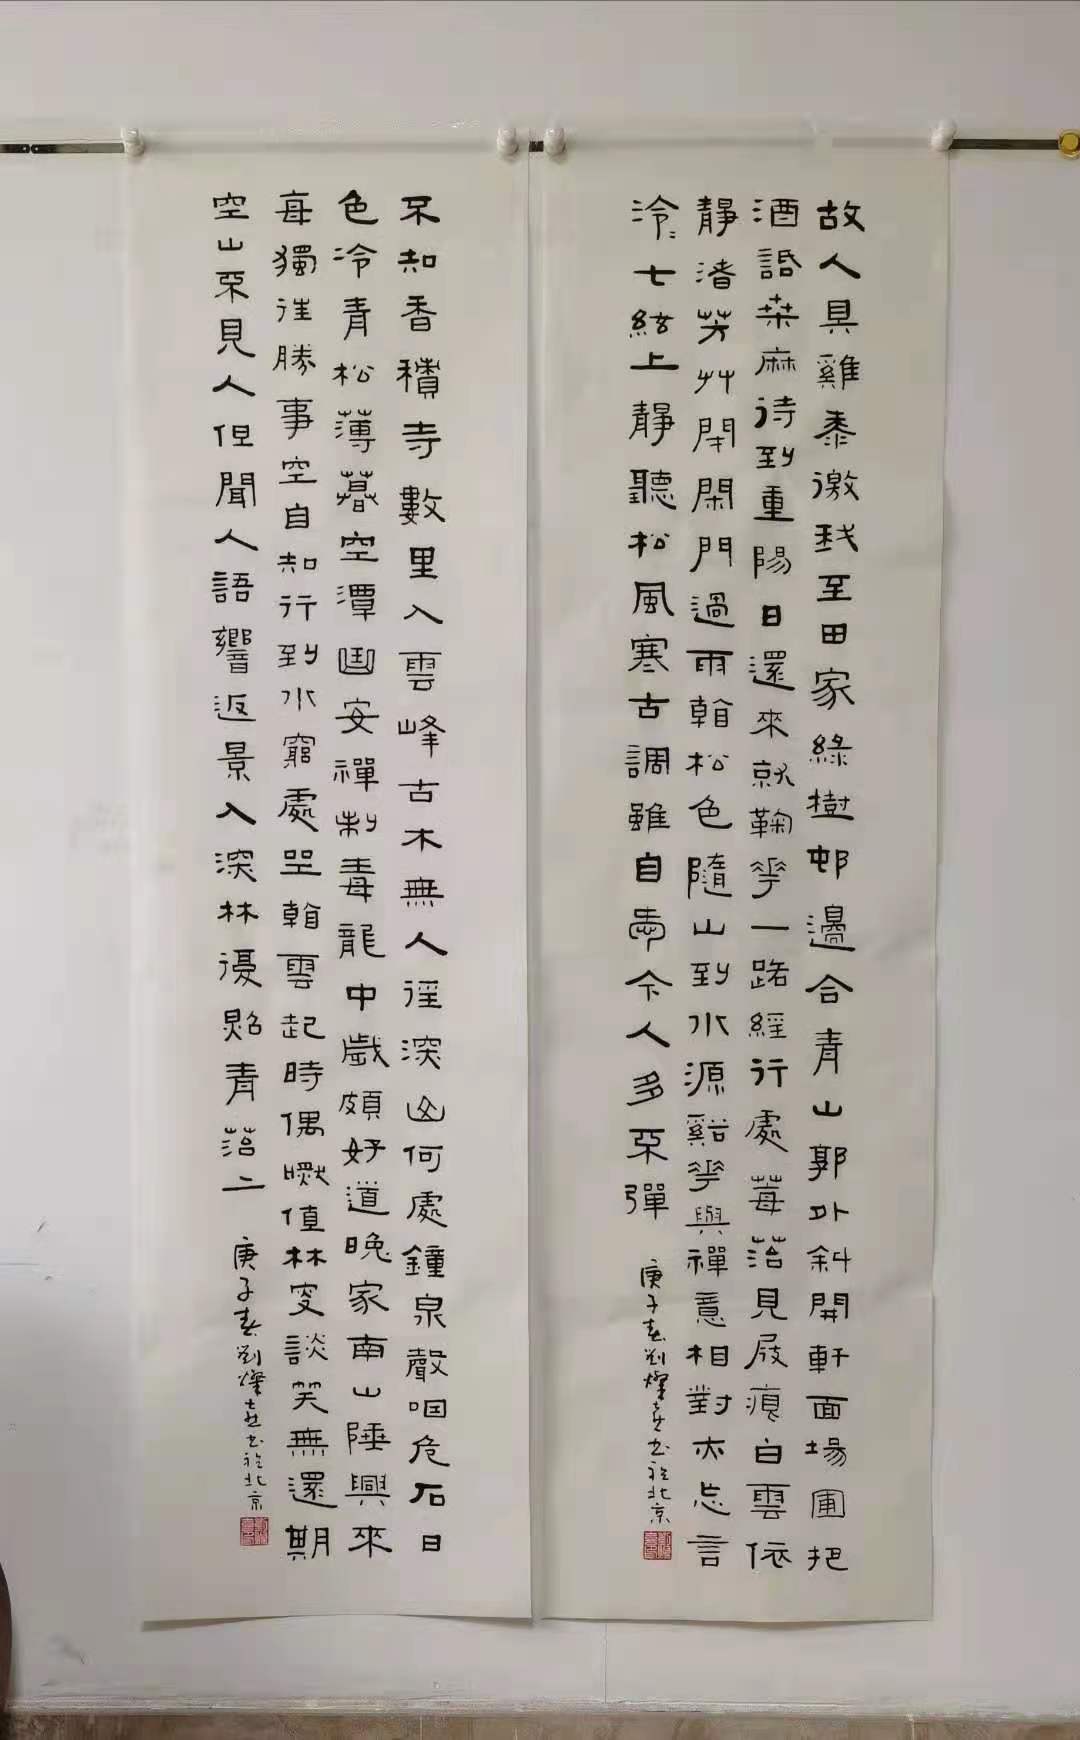 故人具雞黍邀我至田家綠樹邨邊合青山郭外斜開軒面場圃把
酒話桑麻待到重陽日還來就鞠花一路經行處莓苔見屐痕白雲依
靜渚芳艸閉閑門過雨看松色隨山到水源谿花與禪意相對亦忘言
泠〻七絃上靜聽松風寒古調雖自愛今人多不彈
庚子春劉燦書於北京
不知香積寺數里入雲峰古木無人徑深山何處鐘泉聲咽危石日
色冷青松薄暮空潭曲安禪制毒龍中歲頗好道晚家南山陲興來
每獨往勝事空自知行到水窮處坐看雲起時偶然值林叟談笑無還期
空山不見人但聞人語響返景入深林復照青苔上
庚子春劉燦書於北京